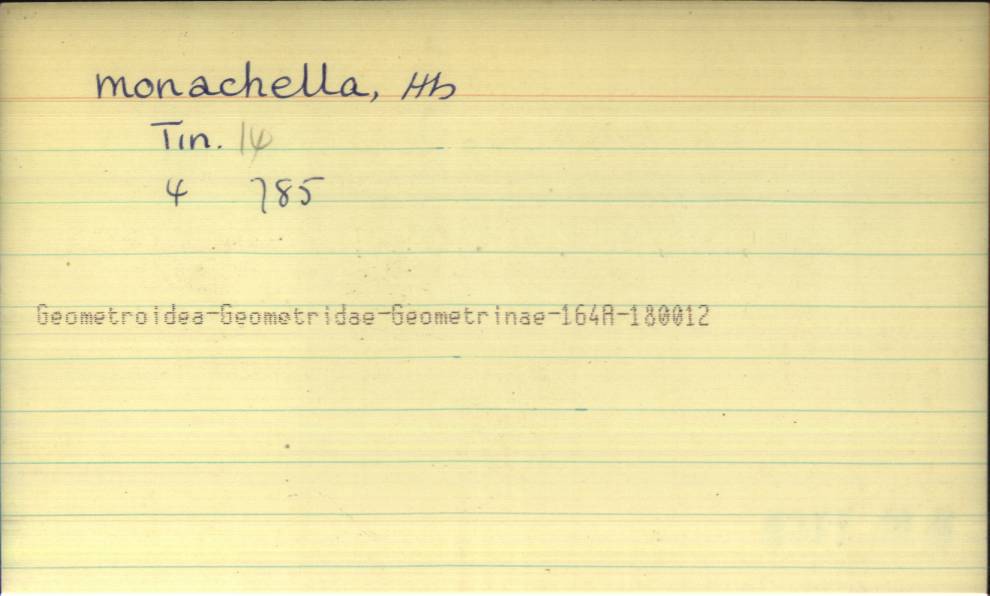 monachella, Hb
Tin. 14
4 785
Geometroidea-Geometridae-Geometrinae-164A-180012